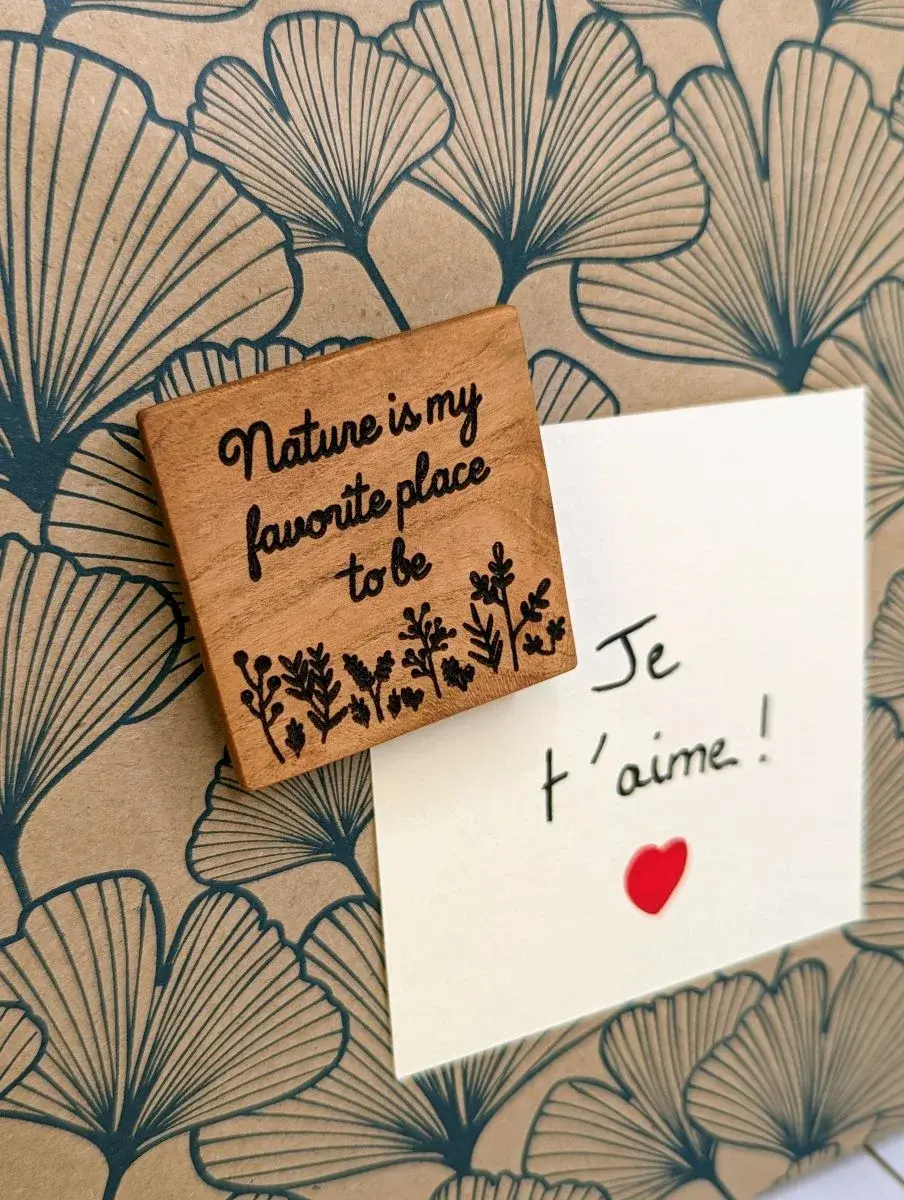 Nature is my
favorite place
to be
Je
t'aime!